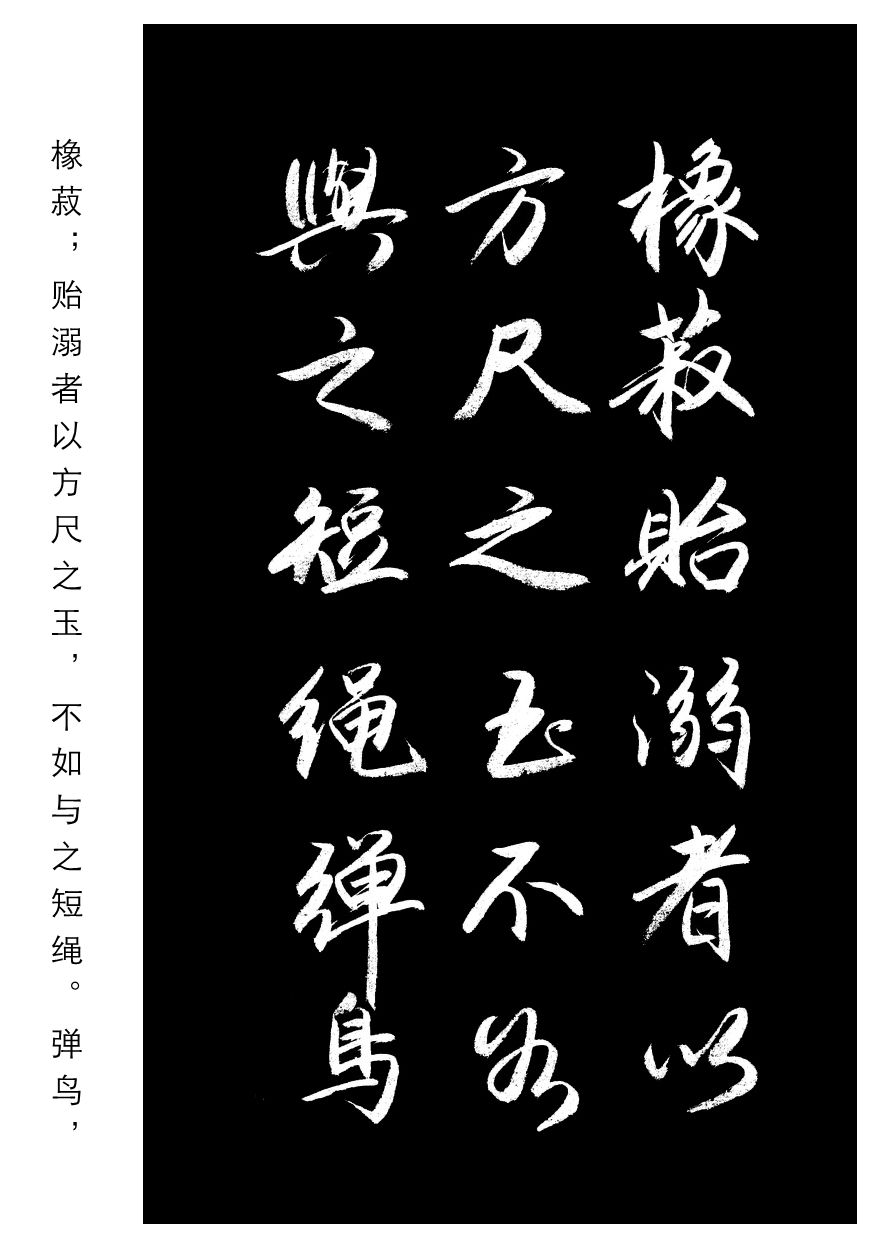 橡菽貽溺者以
方尺之玉不如
與之短绳弹鸟
橡菽；贻溺者以方尺之玉，不如与之短绳。弹鸟，